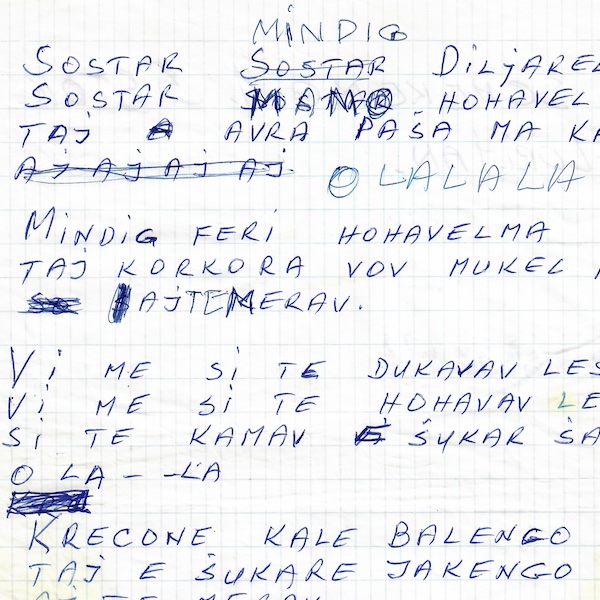 MINDIG
SOSTAR SOSTAR DILJAREL
SOSTAR MAMO HOHAVEL
TAJ AVRA PAŠA MA KA
AJ AJ AJ AJ AJ. O LALALA
MINDIG FERI HOHAVELMA
TAJ KORKORA VOV MUKEL
AJ TE MERAV.
VI ME SI TE DUKAVAV LES
VI ME SI TE HOHAVAV LE
SI TE KAMAV ŠUKAR ŠA
O LA - - LA
KRECONE KALE BALENGO
TAJ E ŠUKARE JAKENGO
AJ TE MERAV